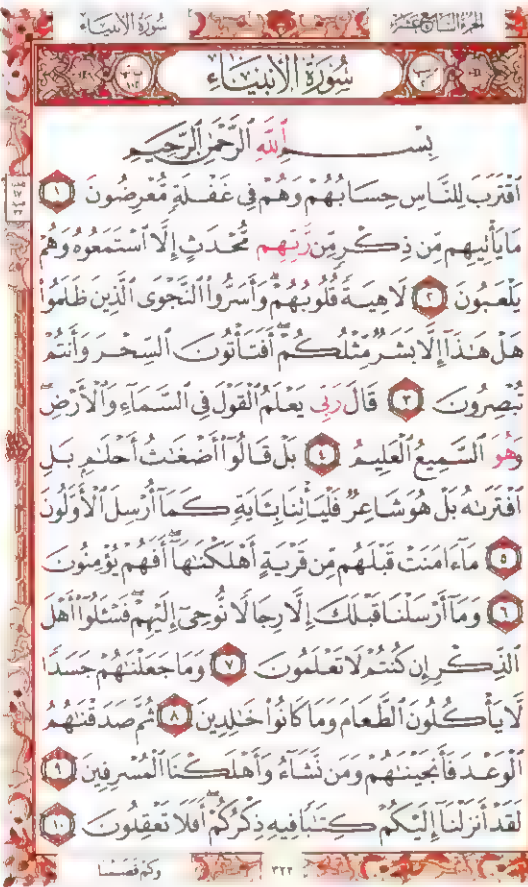 سُورَةُ الأَنبِيَاءِ
الجُزءُ السَّابِعَ عَشَرَ
سُورَةُ الأَنبِيَاءِ
بِسْمِ ٱللَّهِ ٱلرَّحْمَٰنِ ٱلرَّحِيمِ
ٱقْتَرَبَ لِلنَّاسِ حِسَابُهُمْ وَهُمْ فِى غَفْلَةٍ مُّعْرِضُونَ ١
مَا يَأْتِيهِم مِّن ذِكْرٍ مِّن رَّبِّهِم مُّحْدَثٍ إِلَّا ٱسْتَمَعُوهُ وَهُمْ
يَلْعَبُونَ ٢ لَاهِيَةً قُلُوبُهُمْ ۗ وَأَسَرُّوا۟ ٱلنَّجْوَى ٱلَّذِينَ ظَلَمُوا۟
هَلْ هَٰذَآ إِلَّا بَشَرٌ مِّثْلُكُمْ ۖ أَفَتَأْتُونَ ٱلسِّحْرَ وَأَنتُمْ
تُبْصِرُونَ ٣ قَالَ رَبِّى يَعْلَمُ ٱلْقَوْلَ فِى ٱلسَّمَآءِ وَٱلْأَرْضِ ۖ
وَهُوَ ٱلسَّمِيعُ ٱلْعَلِيمُ ٤ بَلْ قَالُوٓا۟ أَضْغَٰثُ أَحْلَٰمٍۭ بَلِ
ٱفْتَرَىٰهُ بَلْ هُوَ شَاعِرٌ فَلْيَأْتِنَا بِـَٔايَةٍ كَمَآ أُرْسِلَ ٱلْأَوَّلُونَ
٥ مَآ ءَامَنَتْ قَبْلَهُم مِّن قَرْيَةٍ أَهْلَكْنَٰهَآ ۖ أَفَهُمْ يُؤْمِنُونَ
٦ وَمَآ أَرْسَلْنَا قَبْلَكَ إِلَّا رِجَالًا نُّوحِىٓ إِلَيْهِمْ ۖ فَسْـَٔلُوٓا۟ أَهْلَ
ٱلذِّكْرِ إِن كُنتُمْ لَا تَعْلَمُونَ ٧ وَمَا جَعَلْنَٰهُمْ جَسَدًا
لَّا يَأْكُلُونَ ٱلطَّعَامَ وَمَا كَانُوا۟ خَٰلِدِينَ ٨ ثُمَّ صَدَقْنَٰهُمُ
ٱلْوَعْدَ فَأَنجَيْنَٰهُمْ وَمَن نَّشَآءُ وَأَهْلَكْنَا ٱلْمُسْرِفِينَ ٩
لَقَدْ أَنزَلْنَآ إِلَيْكُمْ كِتَٰبًا فِيهِ ذِكْرُكُمْ ۖ أَفَلَا تَعْقِلُونَ ١٠
٣٢٢
وَكَمْ قَصَمْنَا